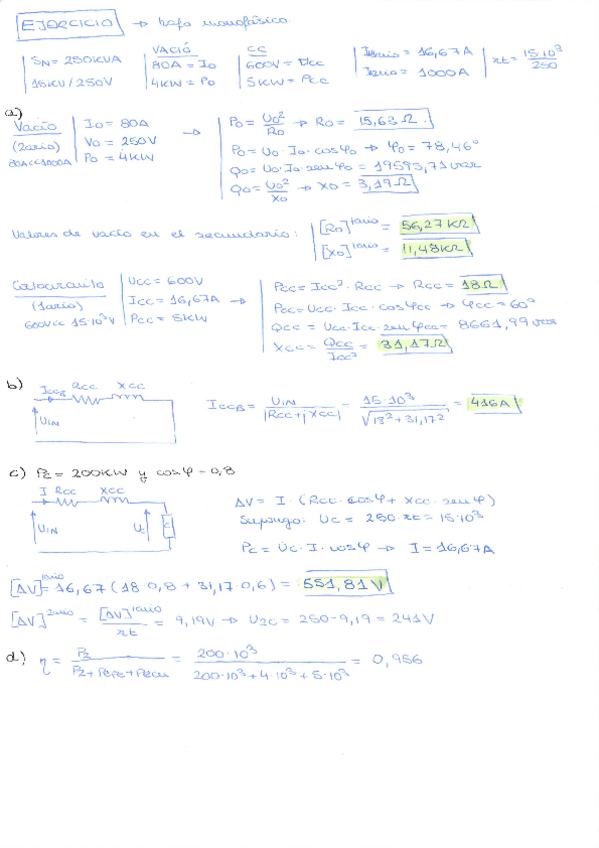 EJERCICIO → trafo monofásico.
SN = 250KVA
15KV/250V
VACIÓ
80A = Io
4KW = Po
CC
600V = Ucc
5KW = Pcc
I1ario = 16,67A
I2ario = 1000A
rt = 15·10³/250
a)
Vacío
(2ario)
80A<<1000A
Io = 80A
Vo = 250V
Po = 4KW
→
Po = Uo²/Ro → Ro = 15,63Ω
Po = Uo·Io·cosφo → φo = 78,46°
Qo = Uo·Io·senφo = 19595,71var
Qo = Uo²/Xo → Xo = 3,19Ω
Valores de vacío en el secundario:
[Ro]1ario = 56,27KΩ
[Xo]1ario = 11,48KΩ
Cortocircuito
(1ario)
600V<<15·10³V
Ucc = 600V
Icc = 16,67A →
Pcc = 5KW
Pcc = Icc²·Rcc → Rcc = 18Ω
Pcc = Ucc·Icc·cosφcc → φcc = 60°
Qcc = Ucc·Icc·senφcc = 8661,99var
Xcc = Qcc/Icc² = 31,17Ω
b)
IccB Rcc Xcc
UIN
IccB = UIN/|Rcc+jXcc| = 15·10³/√18²+31,17² = 416A
c) Pc = 200KW y cosφ = 0,8
I Rcc Xcc
UIN
Uc
C
ΔV = I·(Rcc·cosφ + Xcc·senφ)
Supongo: Uc = 250·rt = 15·10³
Pc = Uc·I·cosφ → I = 16,67A
[ΔV]1ario = 16,67(18·0,8 + 31,17·0,6) = 551,81V
[ΔV]2ario = [ΔV]1ario/rt = 9,19V → U2C = 250-9,19 = 241V
d) η = P2/P2+PFe+PCu = 200·10³/200·10³+4·10³+5·10³ = 0,956